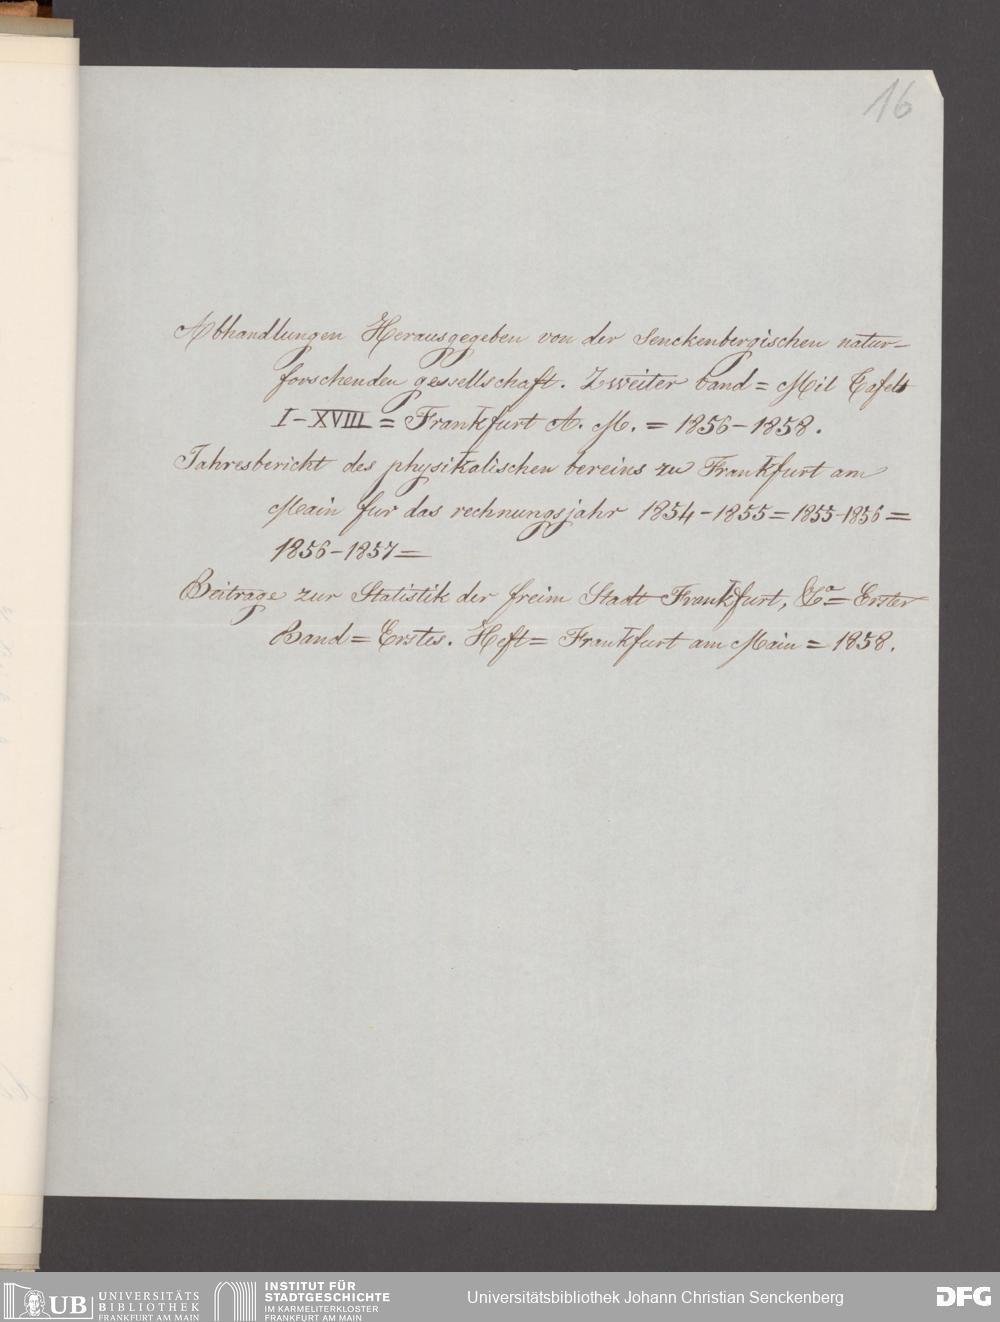 16
Abhandlungen Herausgegeben von der Senckenbergischen natur-
forschenden gessellschaft. Zweiter band = Mit Tafeln
I-XVIII = Frankfurt A. M. = 1856-1858.
Jahresbericht des physikalischen bereins zu Frankfurt am
Main fur das rechnungsjahr 1854-1855 = 1855-1856 =
1856-1857 =
Beitrage zur Statistik der freim Stadt Frankfurt, &a = Erster
Band = Erstes. Heft = Frankfurt am Main = 1858.
UB UNIVERSITÄTS
BIBLIOTHEK
FRANKFURT AM MAIN
INSTITUT FÜR
STADTGESCHICHTE
IM KARMELITERKLOSTER
FRANKFURT AM MAIN
Universitätsbibliothek Johann Christian Senckenberg
DFG